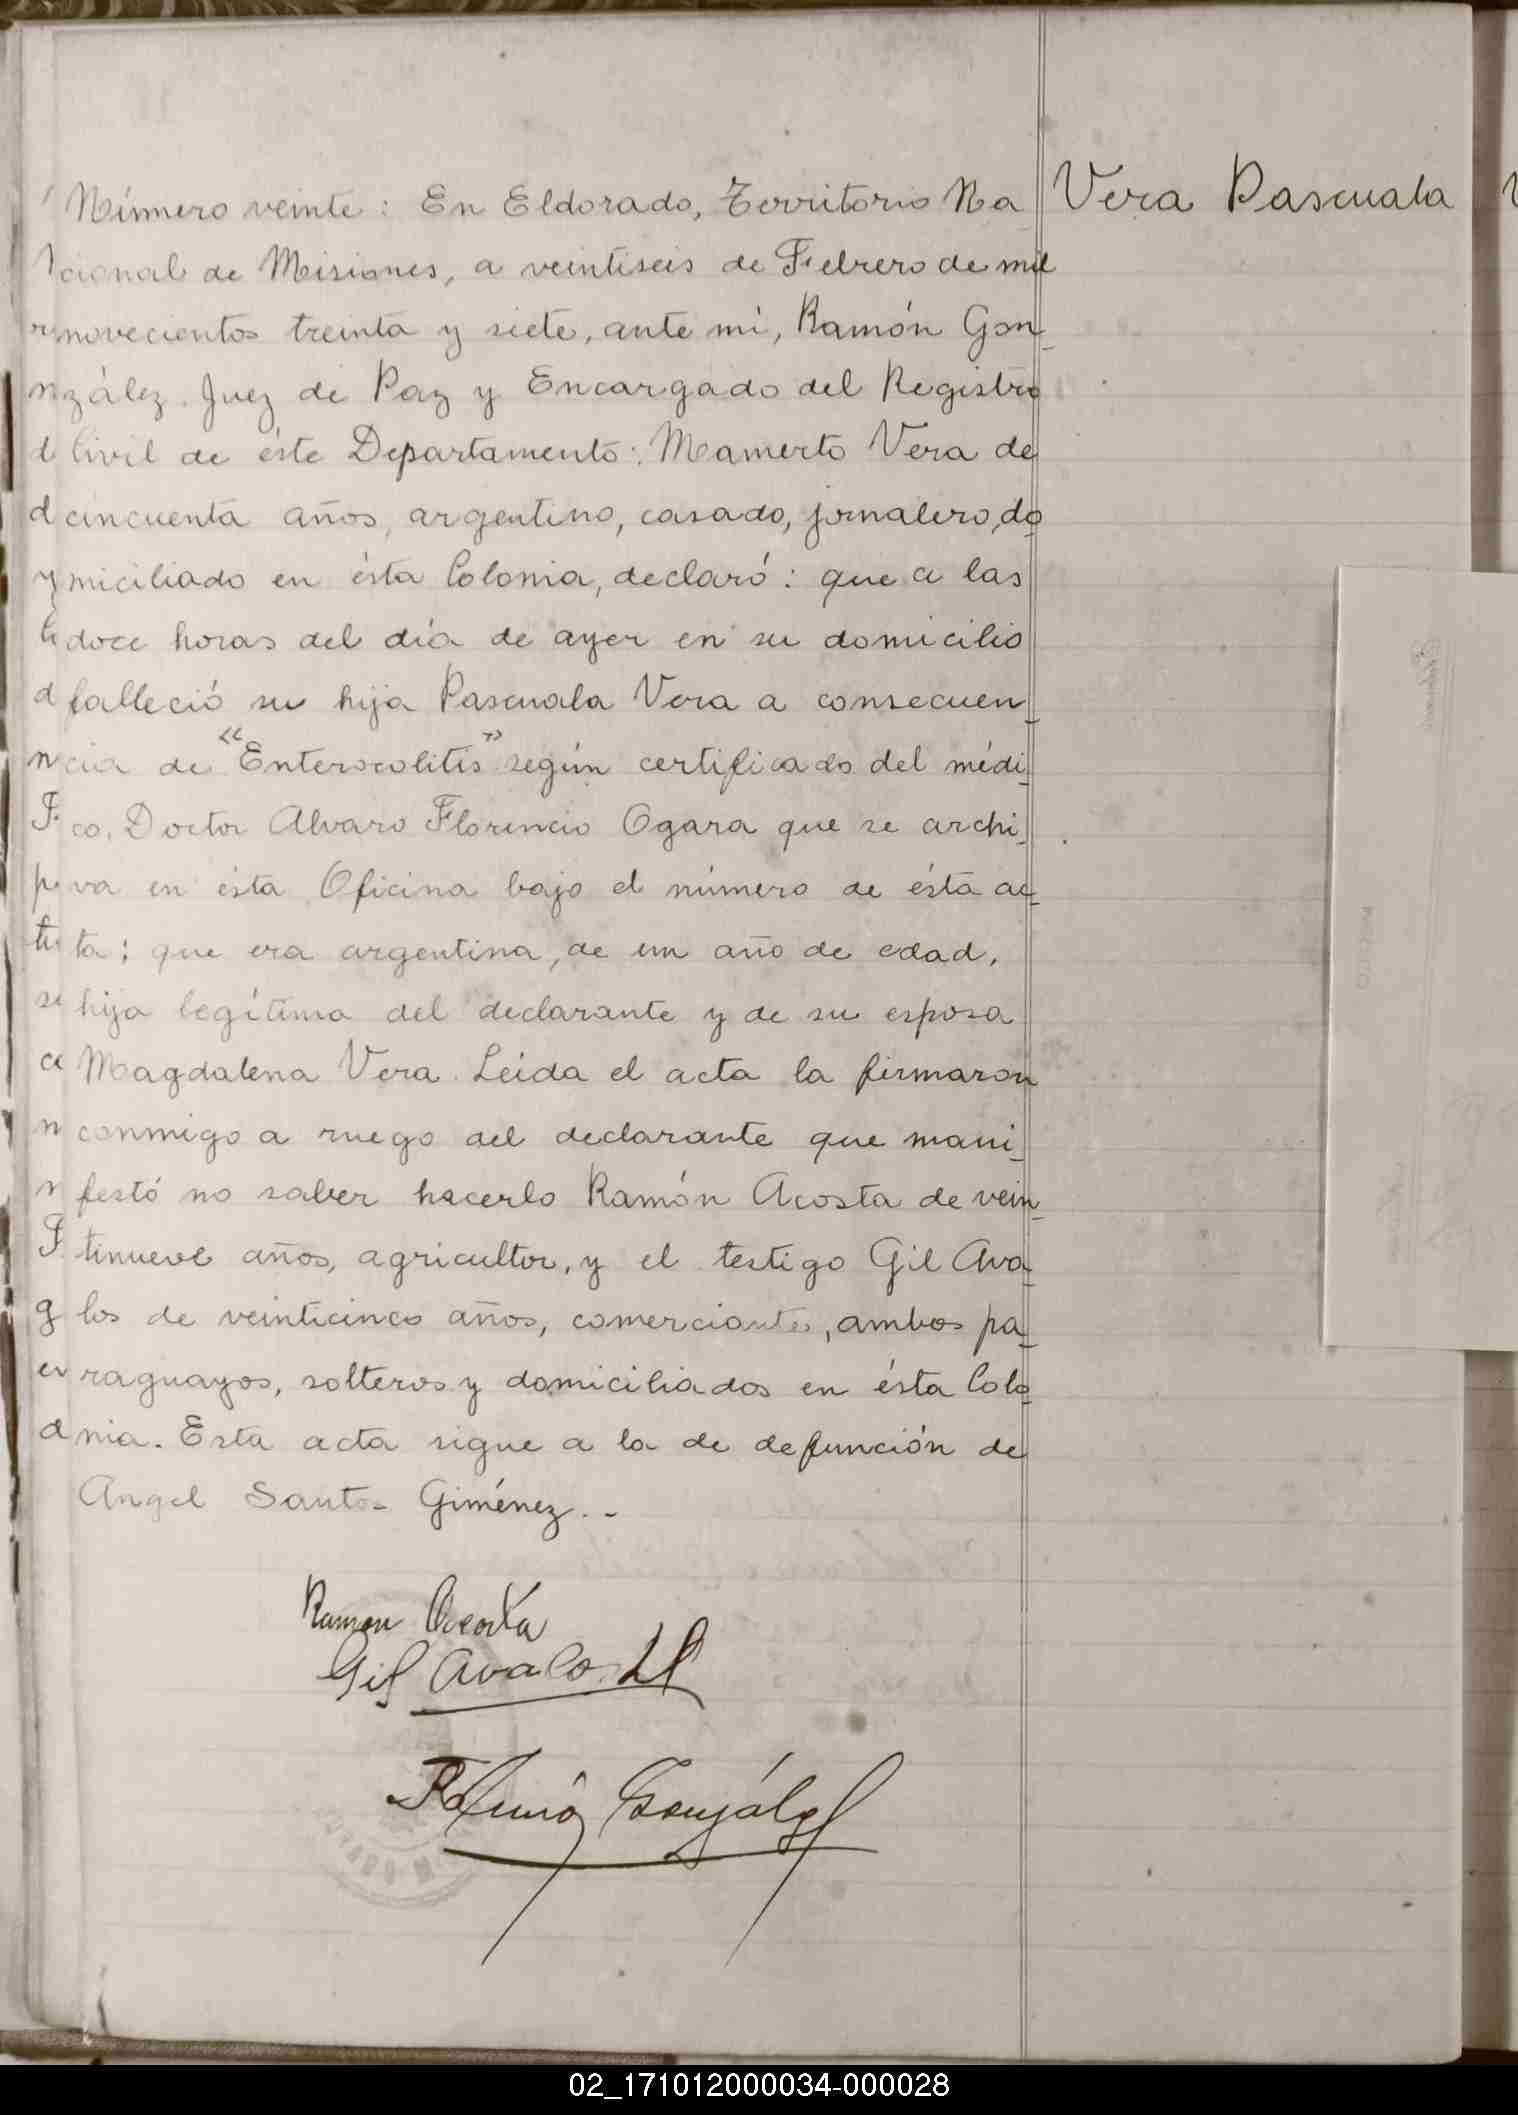 Vera Pascuala
Número veinte: En Eldorado, Territorio Na
cional de Misiones, a veintiseis de Febrero de mil
novecientos treinta y siete, ante mí, Ramón Gon_
zález. Juez de Paz y Encargado del Registro
Civil de éste Departamento: Mamerto Vera de
cincuenta años, argentino, casado, jornalero, do_
miciliado en ésta Colonia, declaró: que a las
doce horas del día de ayer en su domicilio
falleció su hija Pascuala Vera a consecuen_
cia de "Enterocolitis" según certificado del médi_
co, Doctor Alvaro Florencio Ogara que se archi_
va en ésta Oficina bajo el número de ésta ac_
ta; que era argentina, de un año de edad,
hija legítima del declarante y de su esposa
Magdalena Vera. Leida el acta la firmaron
conmigo a ruego del declarante que mani_
festó no saber hacerlo Ramón Acosta de vein_
tinueve años, agricultor, y el testigo Gil Ava_
los de veinticinco años, comerciante, ambos pa_
raguayos, solteros y domiciliados en ésta Colo_
nia. Esta acta sigue a la de defunción de
Angel Santos Giménez. -
Ramon Acosta
Gil Avalos
Ramón González
02_171012000034-000028